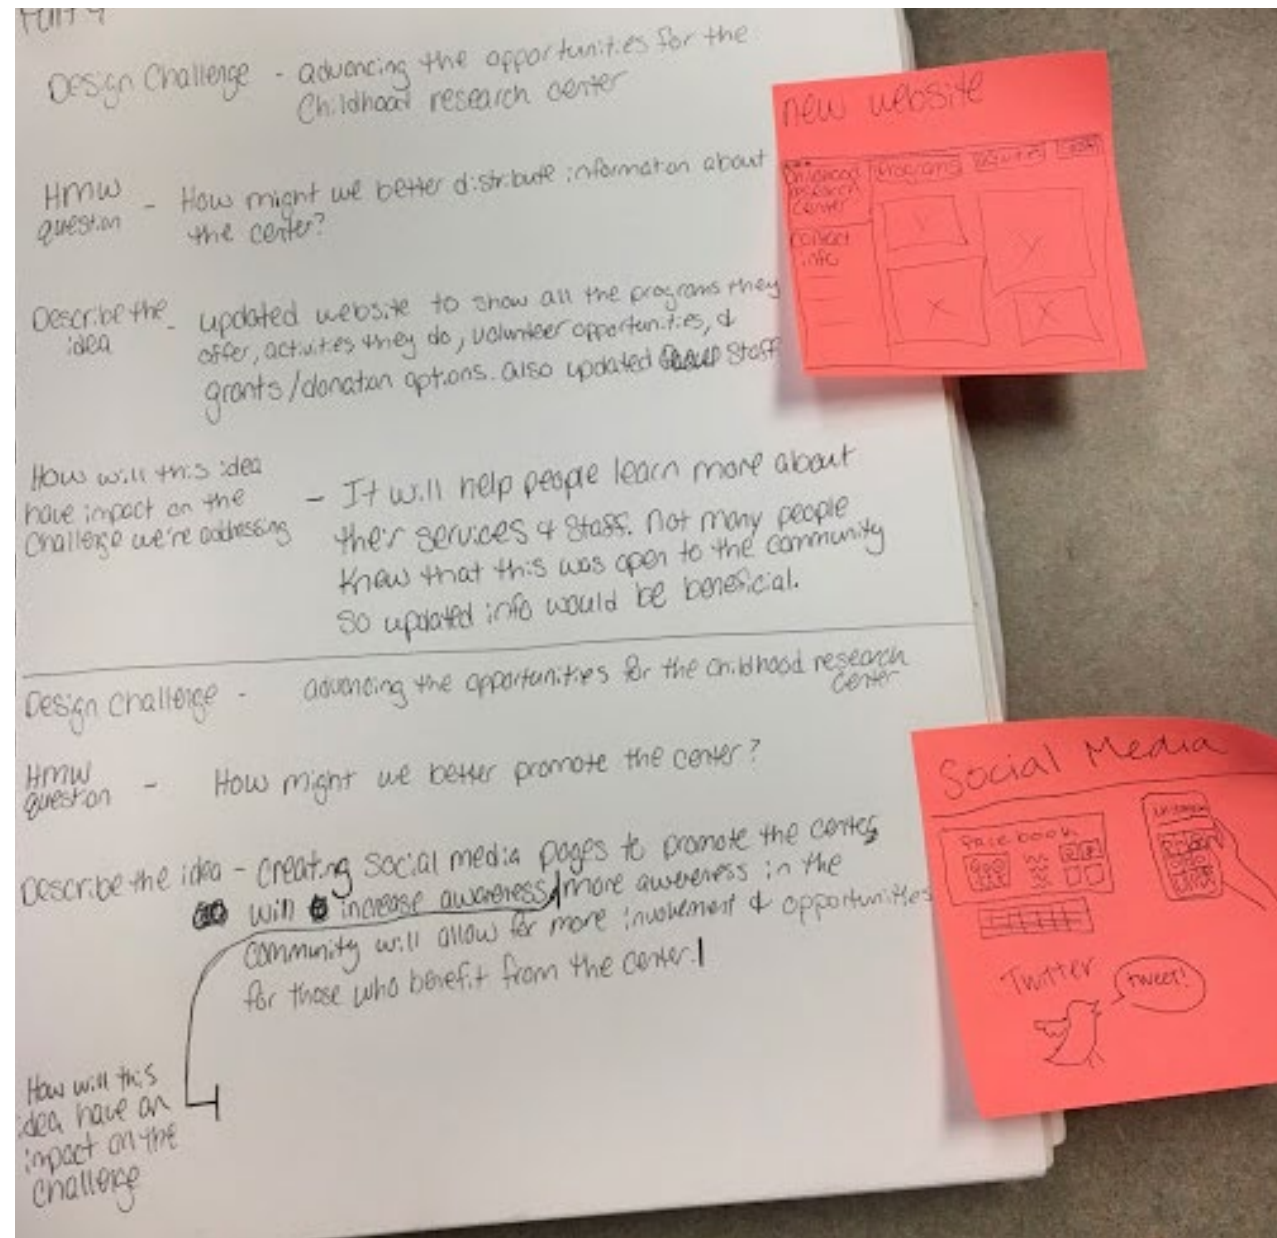 Design Challenge - advancing the opportunities for the
Childhood research center
HMW
question - How might we better distribute information about
the center?
Describe the
idea - updated website to show all the programs they
offer, activities they do, volunteer opportunities, &
grants/donation options. also updated Staff
How will this idea
have impact on the
challenge we're addressing
- It will help people learn more about
their services & staff. Not many people
knew that this was open to the community
so updated info would be beneficial.
Design challenge - advancing the opportunities for the childhood research
center
HMW
question - How might we better promote the center?
Describe the idea - creating social media pages to promote the center
will increase awareness more awareness in the
community will allow for more involvement & opportunities
for those who benefit from the center.
How will this
idea have an
impact on the
challenge
new website
Childhood
research
center
Programs
contact
info
Y
Y
X
X
Social Media
Facebook
Twitter
tweet!